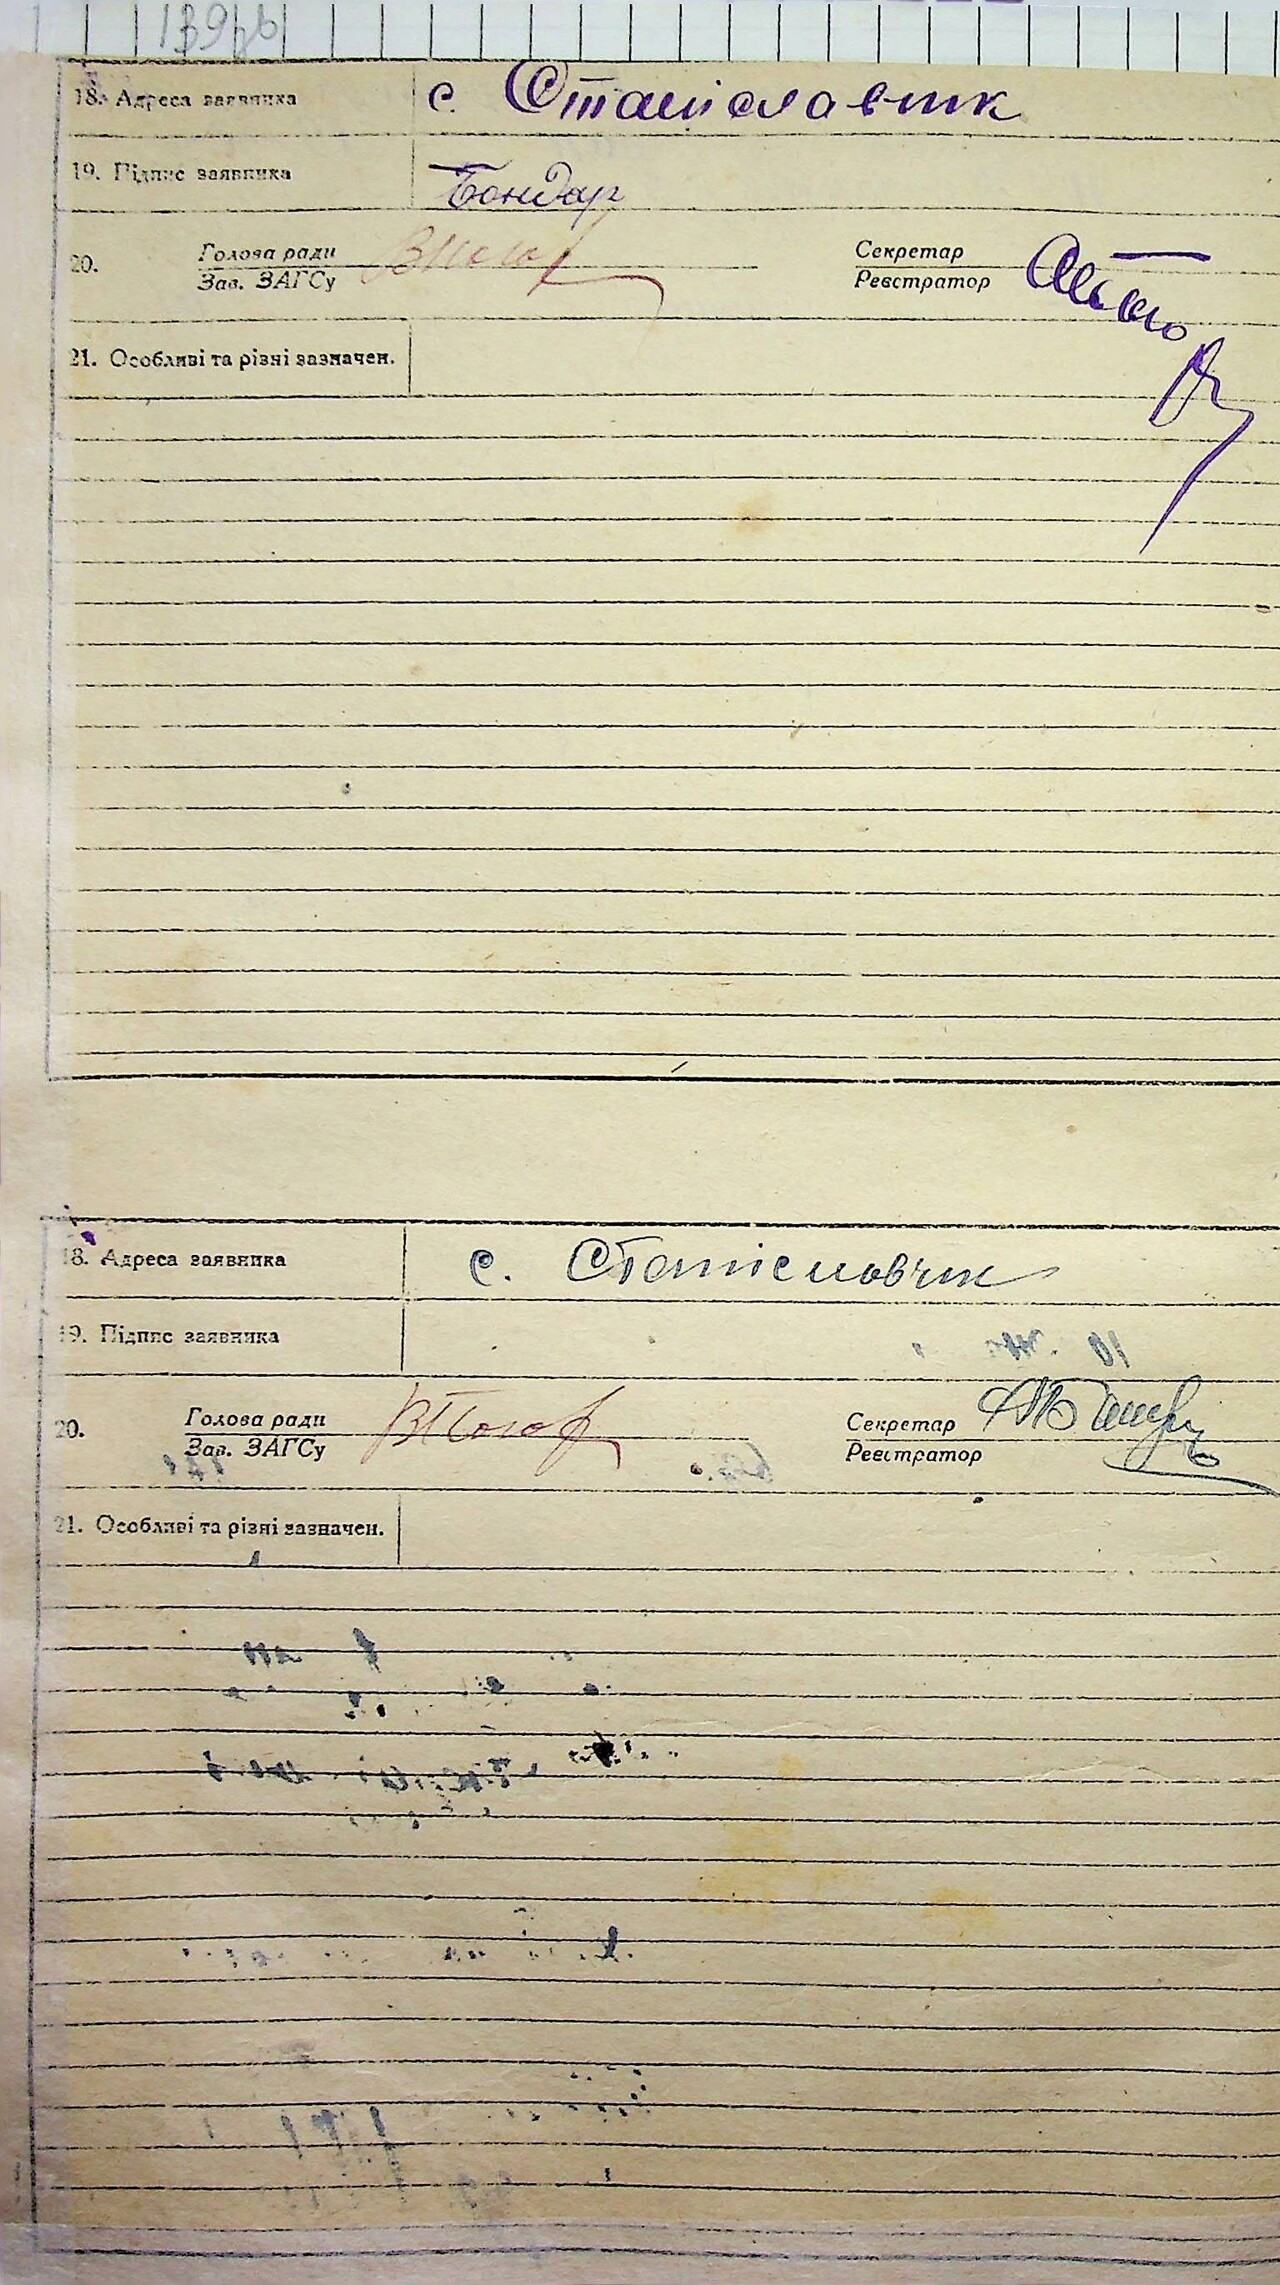 139зв
18. Адреса заявника с. Станіславчик
19. Підпис заявника Бондар
20. Голова ради Секретар
Зав. ЗАГСу Реєстратор
21. Особливі та різні зазначен.
18. Адреса заявника с. Станіславчик
19. Підпис заявника
20. Голова ради Секретар
Зав. ЗАГСу Реєстратор
21. Особливі та різні зазначен.